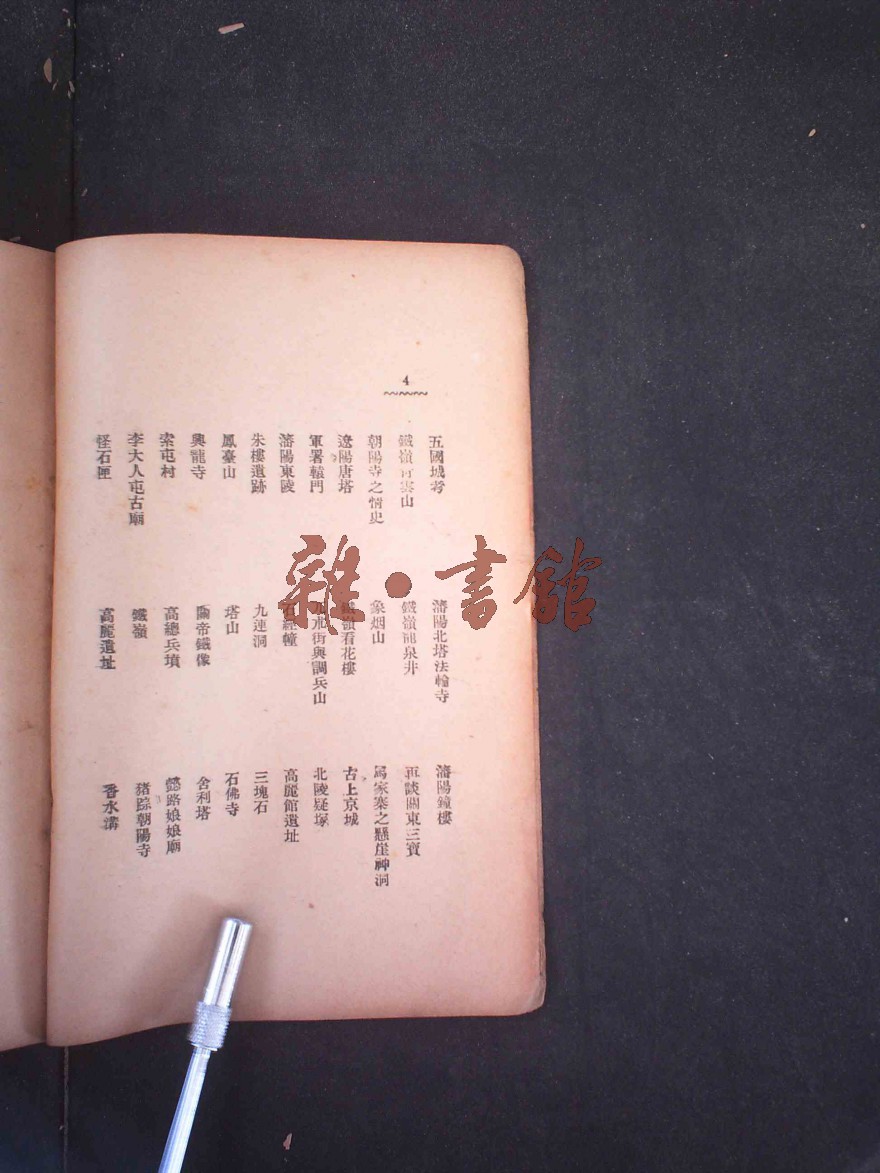 4
五國城考 瀋陽北塔法輪寺 瀋陽鐘樓
鐵嶺青雲山 鐵嶺龍泉井 再談關東三寶
朝陽寺之情史 象烟山 馬家寨之懸崖神洞
遼陽唐塔 鐵嶺看花樓 古上京城
軍署轅門 街與調兵山 北陵疑塚
瀋陽東陵 石經幢 高麗館遺址
朱樓遺跡 九連洞 三塊石
鳳臺山 塔山 石佛寺
興龍寺 關帝鐵像 舍利塔
索屯村 高總兵墳 懿路娘娘廟
李大人屯古廟 鐵嶺 豬踪朝陽寺
怪石匣 高麗遺址 香水溝
雜·書館